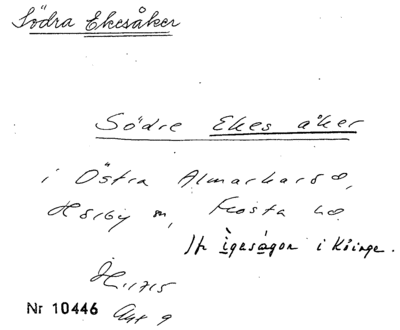 Södra Ekesåker
Södre Ekes åker
i Östra Almarkaröd,
Hörby sn, Frosta hd
Jfr ìgesàgon i Köinge.
1715
Nr 10446 Akt 9